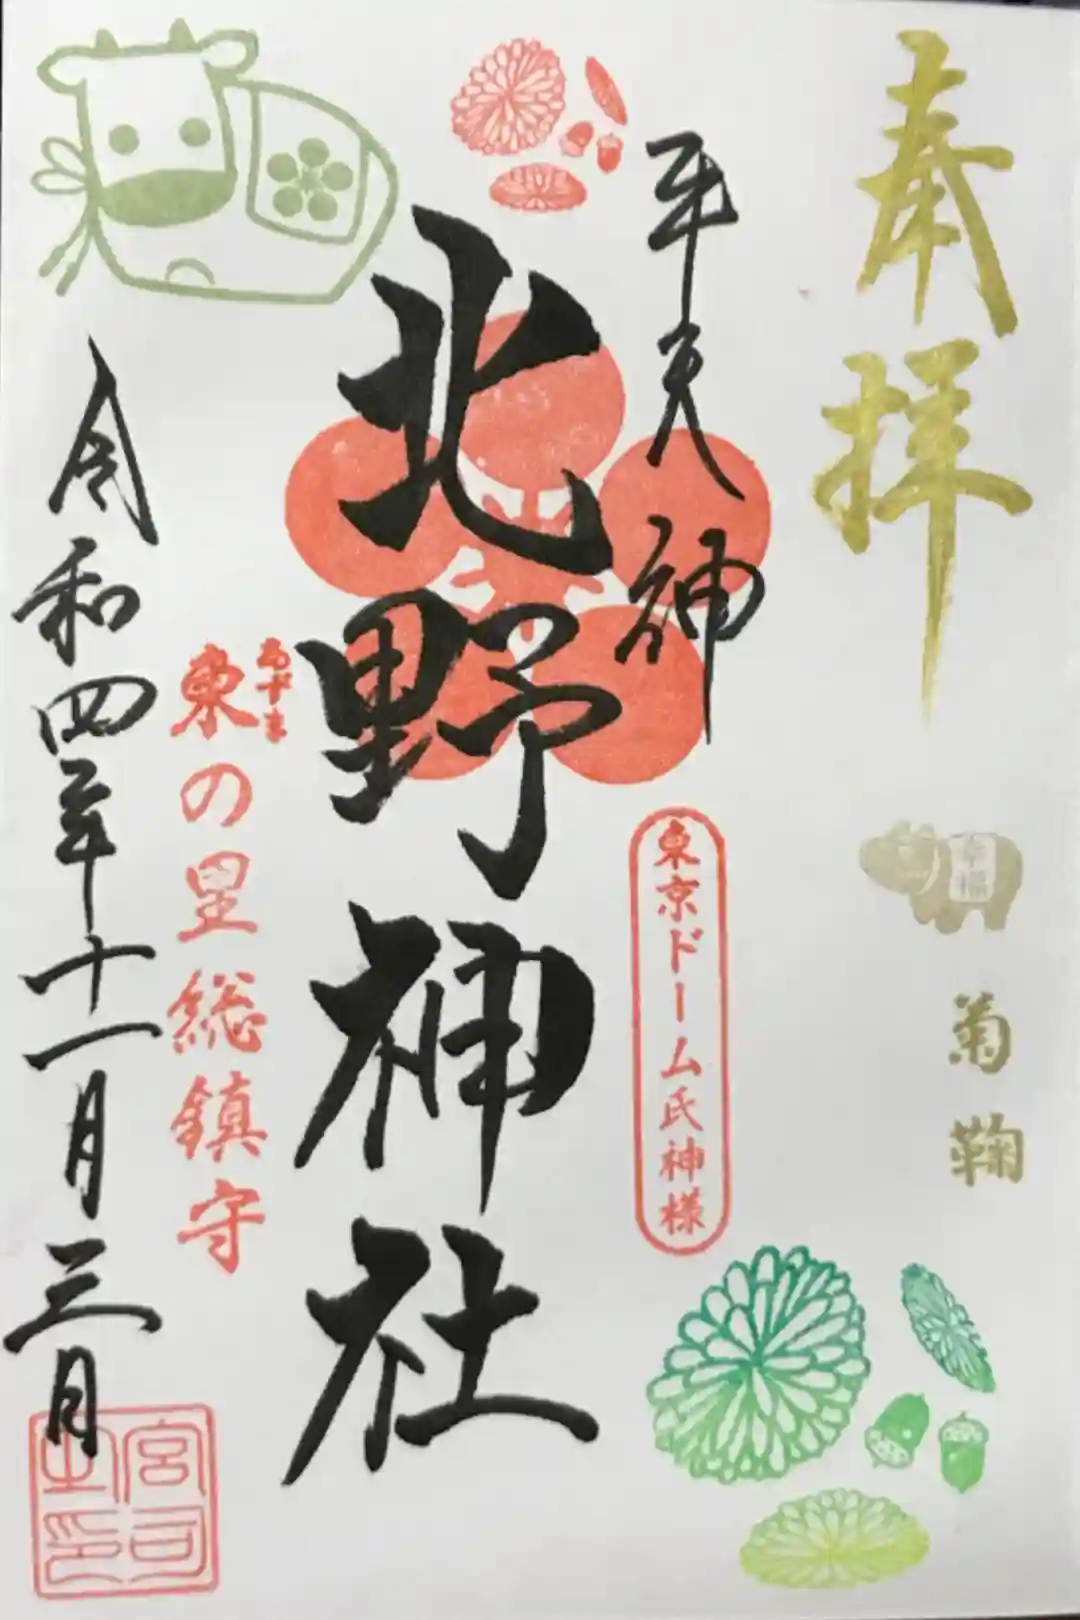 奉拝
幸福
菊鞠
牛天神
東京ドーム氏神様
北野神社
あずま
東の里総鎮守
令和四年十一月三日
宮司之印